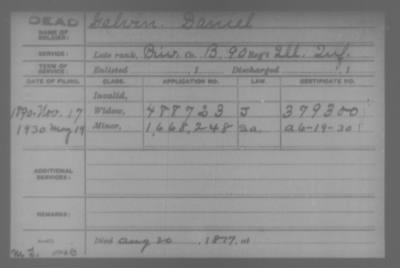 DEAD
NAME OF SOLDIER: Galvin, Daniel
SERVICE: Late rank, Priv. Co. B, 90 Reg't Ill. Inf.
TERM OF SERVICE: Enlisted , 1 Discharged , 1
DATE OF FILING. CLASS. APPLICATION NO. LAW. CERTIFICATE NO.
Invalid,
1890-Nov. 17 Widow, 488723 J 379300
1930 May 19 Minor, 1,668,248 Ga. a 6-19-30
ADDITIONAL SERVICES:
REMARKS:
Died Aug 20 , 1877, at